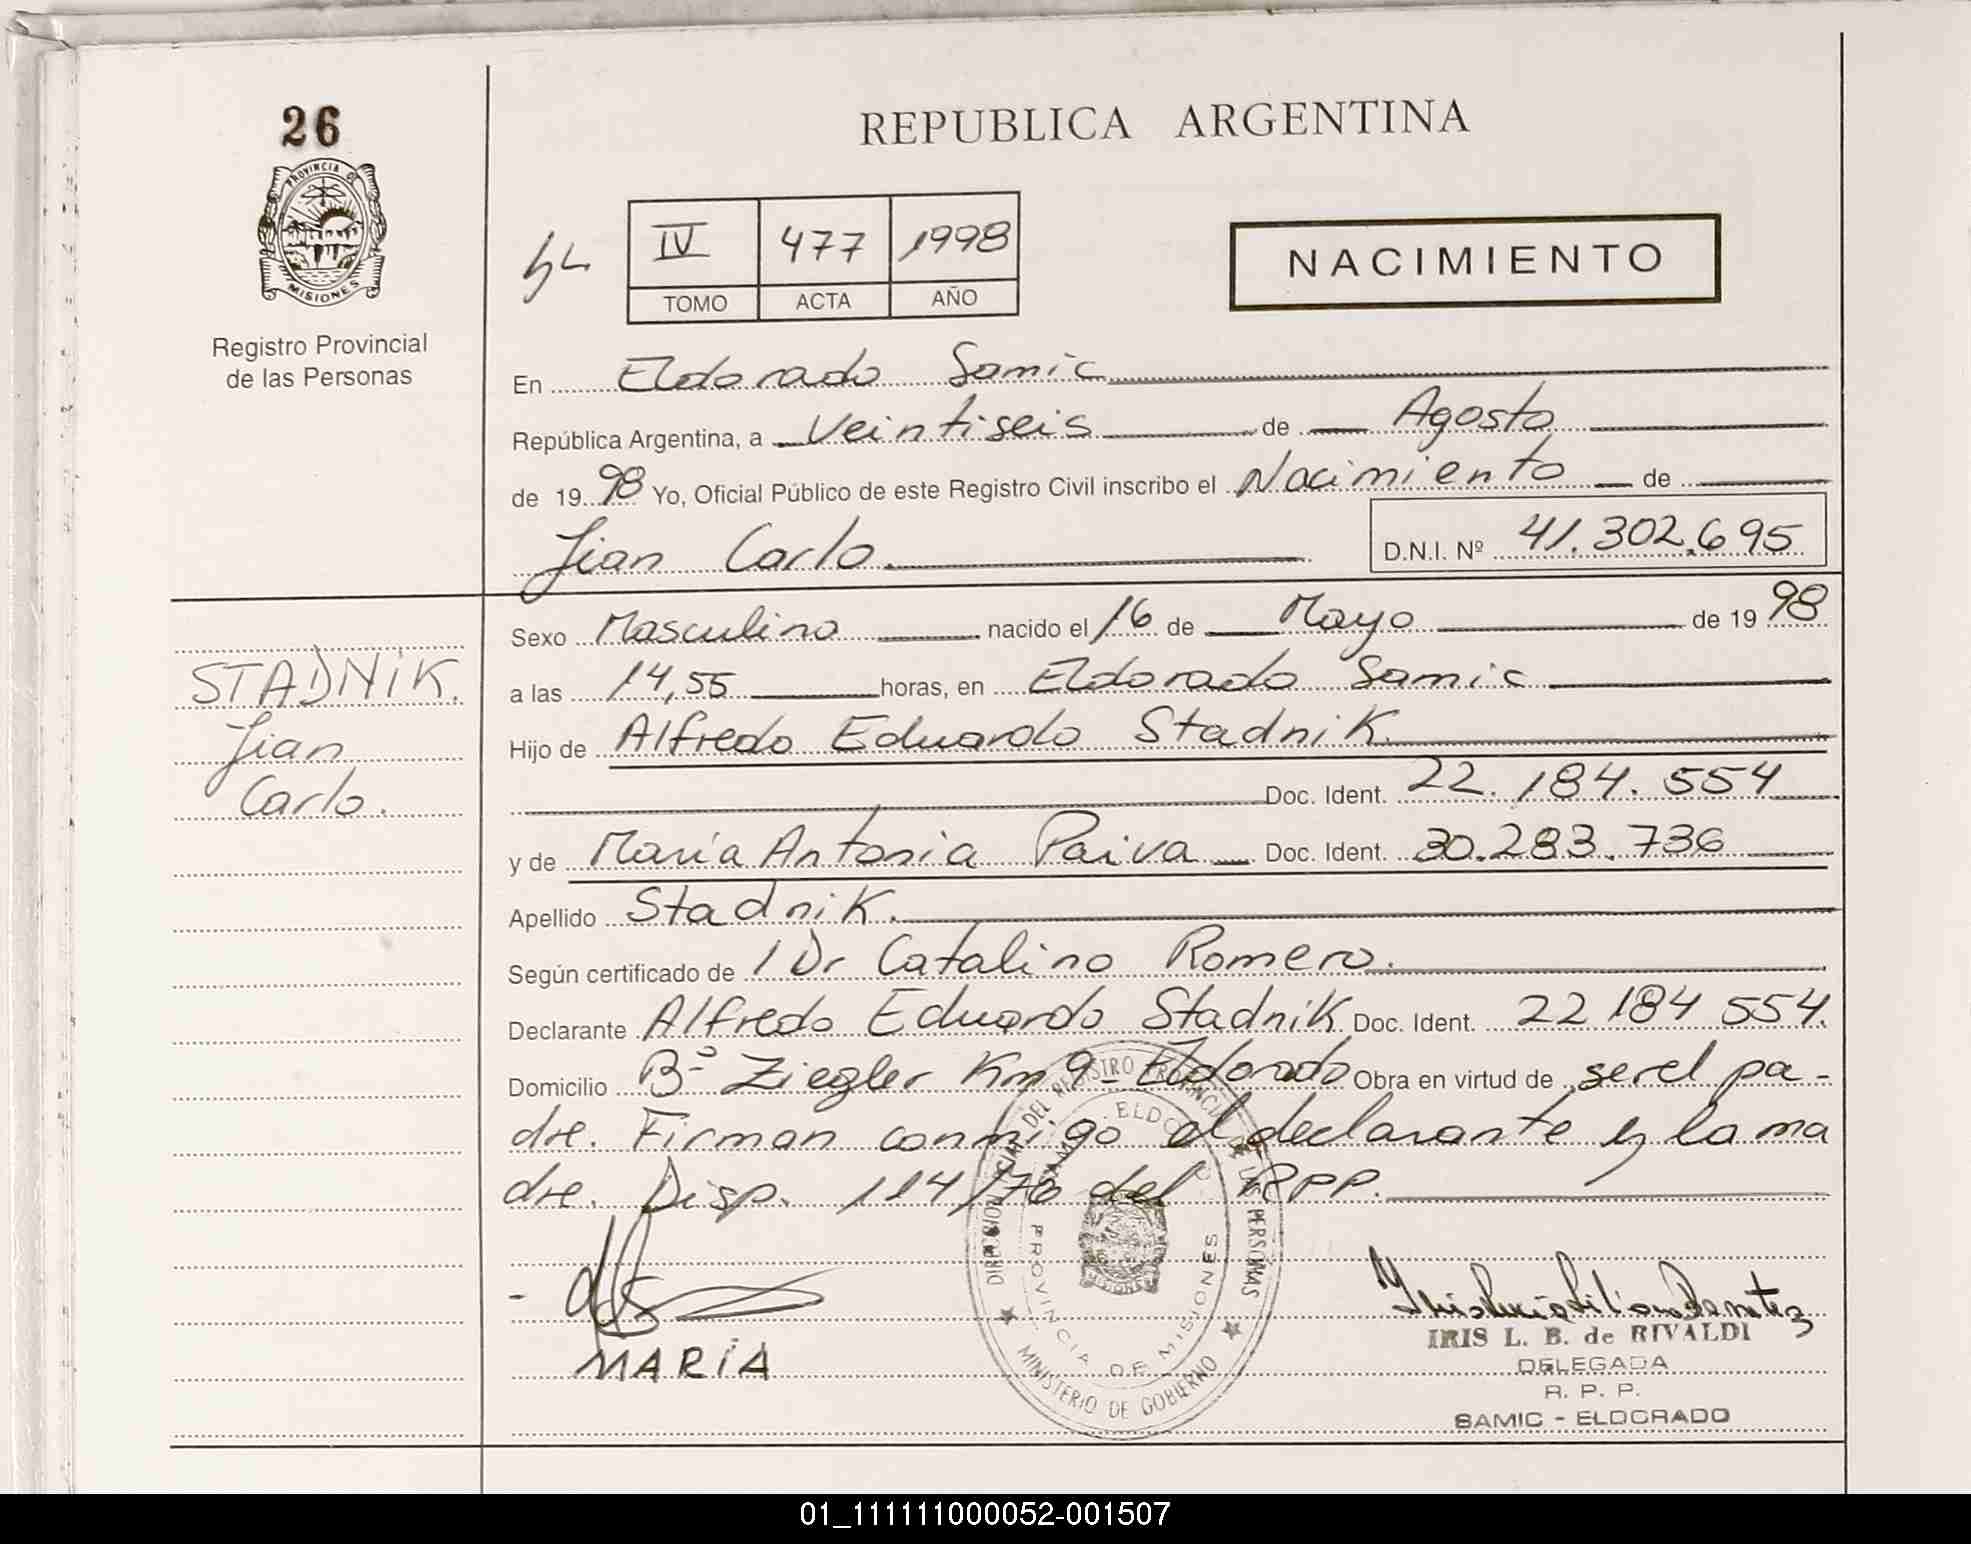 26
PROVINCIA DE
MISIONES
Registro Provincial
de las Personas
REPUBLICA ARGENTINA
IV 477 1998
TOMO ACTA AÑO
NACIMIENTO
En Eldorado Samic
República Argentina, a Veintiseis de Agosto
de 19 98 Yo, Oficial Público de este Registro Civil inscribo el Nacimiento de
Jian Carlo. D.N.I. Nº 41.302.695
Sexo Masculino nacido el 16 de Mayo de 19 98
a las 14,55 horas, en Eldorado Samic
Hijo de Alfredo Eduardo Stadnik.
Doc. Ident. 22.184.554
y de María Antonia Paiva Doc. Ident. 30.283.736
Apellido Stadnik.
Según certificado de 1 Dr Catalino Romero.
Declarante Alfredo Eduardo Stadnik Doc. Ident. 22 184 554.
Domicilio Bº Ziegler Km 9 - Eldorado Obra en virtud de ser el pa-
dre. Firman conmigo el declarante y la ma
dre. Disp. 114/76 del RPP.
STADNIK.
Jian
Carlo.
MARIA
DIRECCION DEL REGISTRO PROVINCIAL DE LAS PERSONAS
MINISTERIO DE GOBIERNO
PROVINCIA DE MISIONES
IRIS L. B. de RIVALDI
DELEGADA
R. P. P.
SAMIC - ELDORADO
01_111111000052-001507